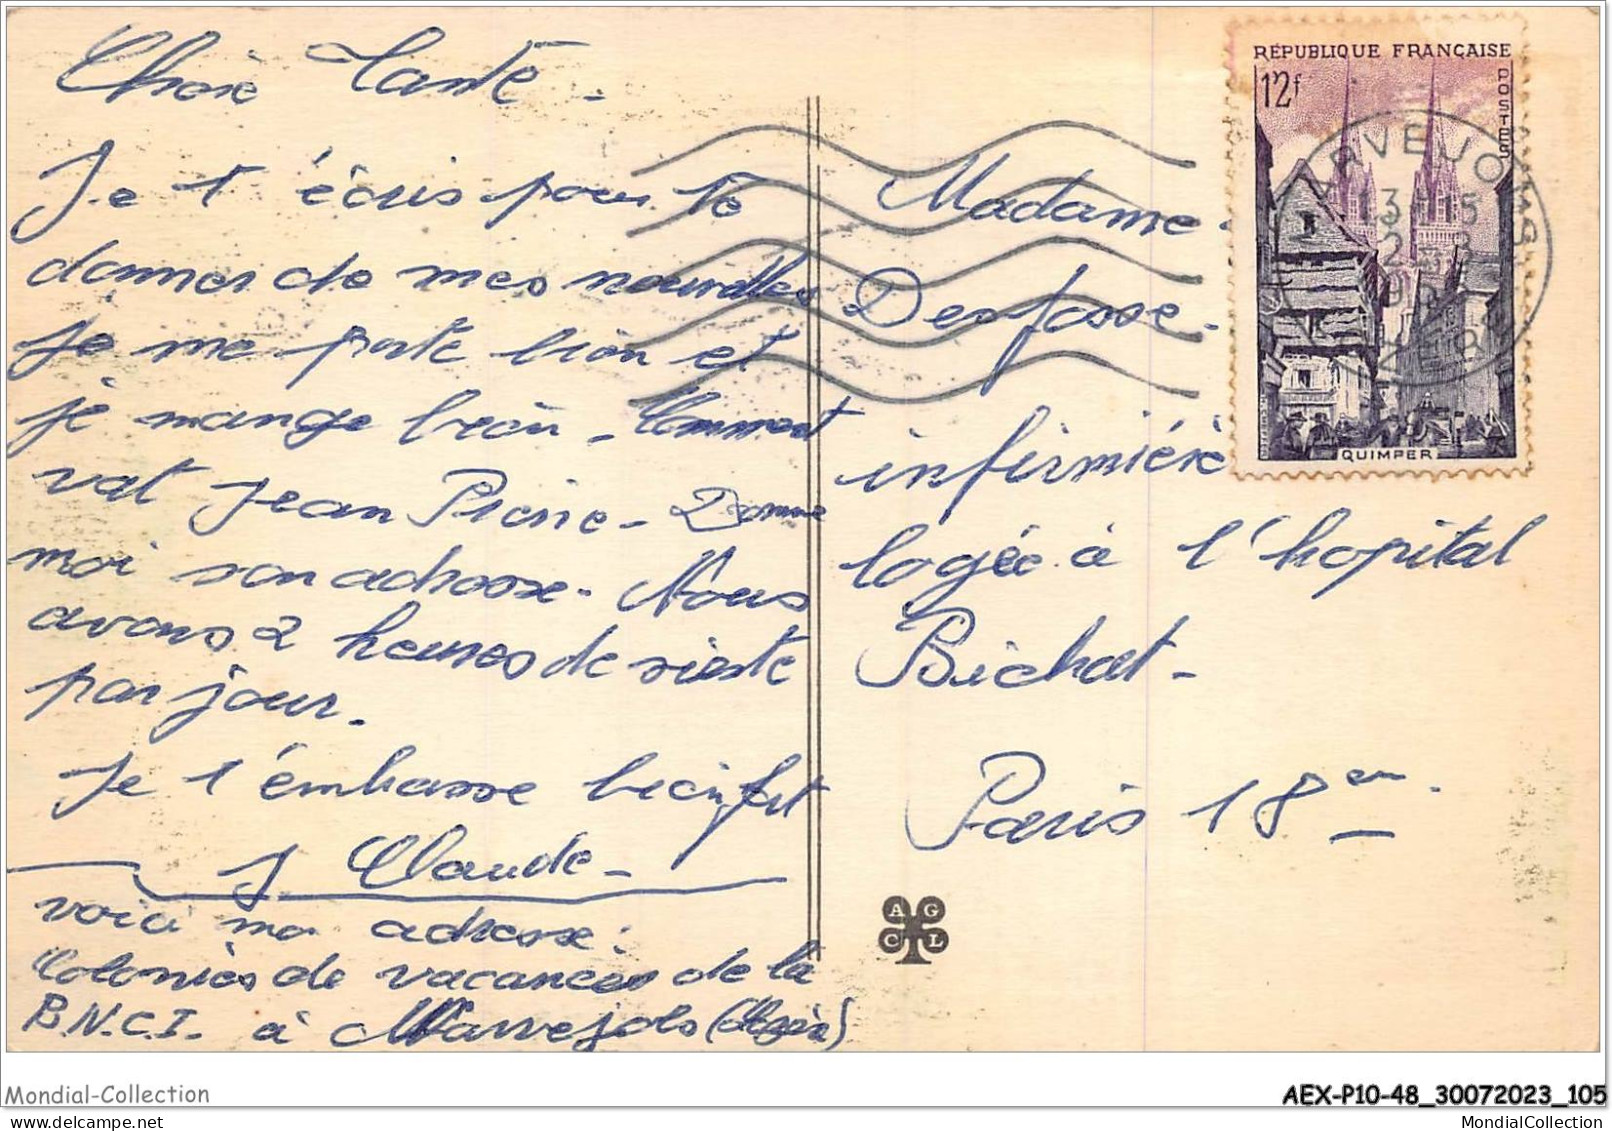 Chère Tante -
Je t'écris pour te
donner de mes nouvelles
Je me porte bien et
je mange bien - Comment
vat Jean Pierre - Donne
moi son adresse - Nous
avons 2 heures de sieste
par jour.
Je t'embrasse bien fort
J Claude -
voici ma adresse:
Colonies de vacances de la
B.N.C.I. à Marvejols
Madame -
Desfosse -
infirmière
logée à l'hopital
Bichat -
Paris 18em.
RÉPUBLIQUE FRANÇAISE
12f
POSTES
QUIMPER
MARVEJOLS
LOZERE
A G
C L
Mondial-Collection
AEX-P10-48_30072023_105
MondialCollection
MondialCollection.com